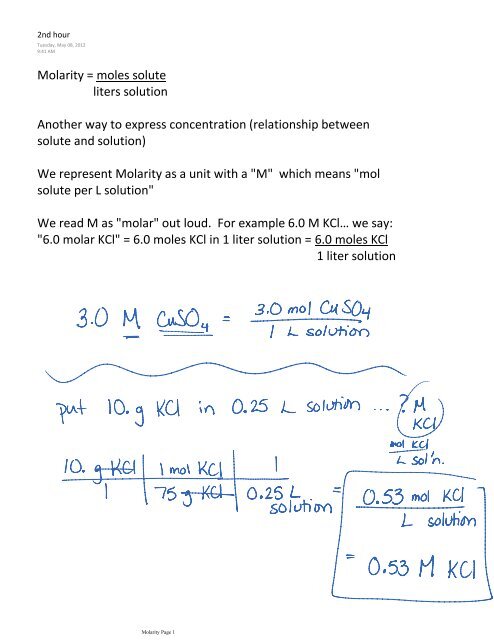 2nd hour
Tuesday, May 08, 2012
9:41 AM
Molarity = moles solute
liters solution
Another way to express concentration (relationship between
solute and solution)
We represent Molarity as a unit with a "M"  which means "mol
solute per L solution"
We read M as "molar" out loud.  For example 6.0 M KCl… we say:
"6.0 molar KCl" = 6.0 moles KCl in 1 liter solution = 6.0 moles KCl
1 liter solution
3.0 M CuSO4 = 3.0 mol CuSO4
1 L solution
put 10. g KCl in 0.25 L solution ... ? M
KCl
mol KCl
L sol'n.
10. g KCl | 1 mol KCl | 1
1 | 75 g KCl | 0.25 L solution
= 0.53 mol KCl
L solution
= 0.53 M KCl
Molarity Page 1